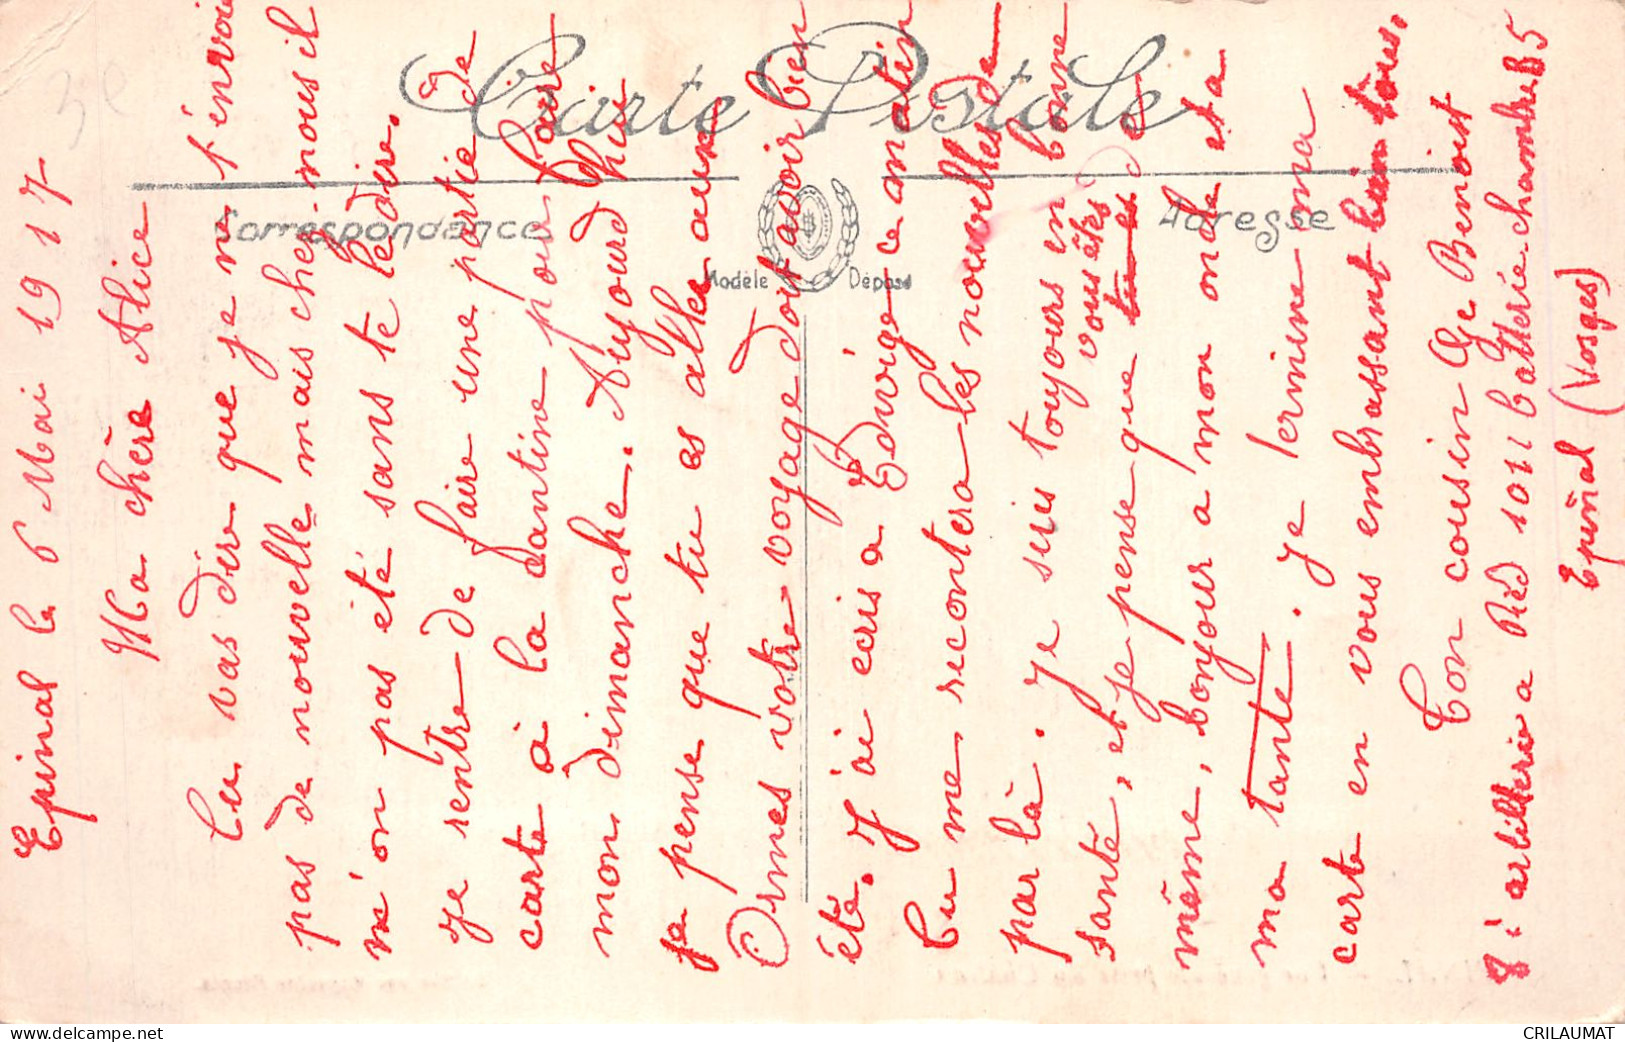 Epinal le 6 Mai 1917
Ma chère Alice
Tu vas dire que je ne t'envoi
pas de nouvelle mais chez nous il
m'on pas été sans te le dire.
je rentre de faire une partie de
carte à la cantine pour faire
mon dimanche. Aujourd'hui
je pense que tu es allée aux
Ormes votre voyage doit avoir bien
été. J'ai ecris a Edwige ce matin
Tu me recontera les nouvelles de
par là. Je suis toujours en bonne
santé, et je pense que tu es vous êtes de
même, bonjour a mon oncle et a
ma tante. Je termine ma
carte en vous embrassant bien tous.
Ton cousin Ge Benoist
8e artillerie a Pied 101e batterie chambre 85
Epinal (Vosges)
Carte Postale
Correspondance
Adresse
Modèle Déposé
delcampe.net
CRILAUMAT